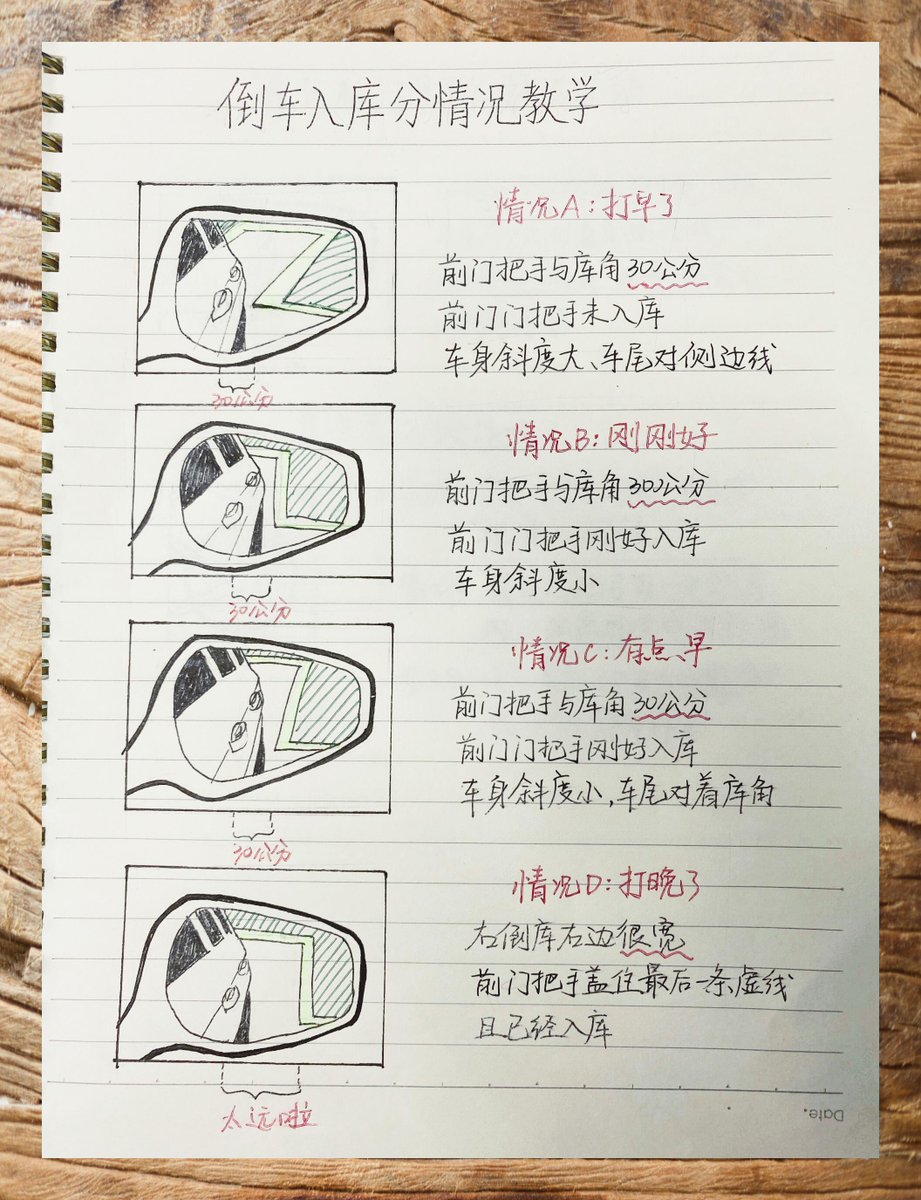 倒车入库分情况教学
情况A:打早了
前门把手与库角30公分
前门门把手未入库
车身斜度大、车尾对侧边线
30公分
情况B:刚刚好
前门把手与库角30公分
前门门把手刚好入库
车身斜度小
30公分
情况C:有点早
前门把手与库角30公分
前门门把手刚好入库
车身斜度小,车尾对着库角
30公分
情况D:打晚了
右倒库右边很宽
前门把手盖住最后一条虚线
且已经入库
太远啦
Date.